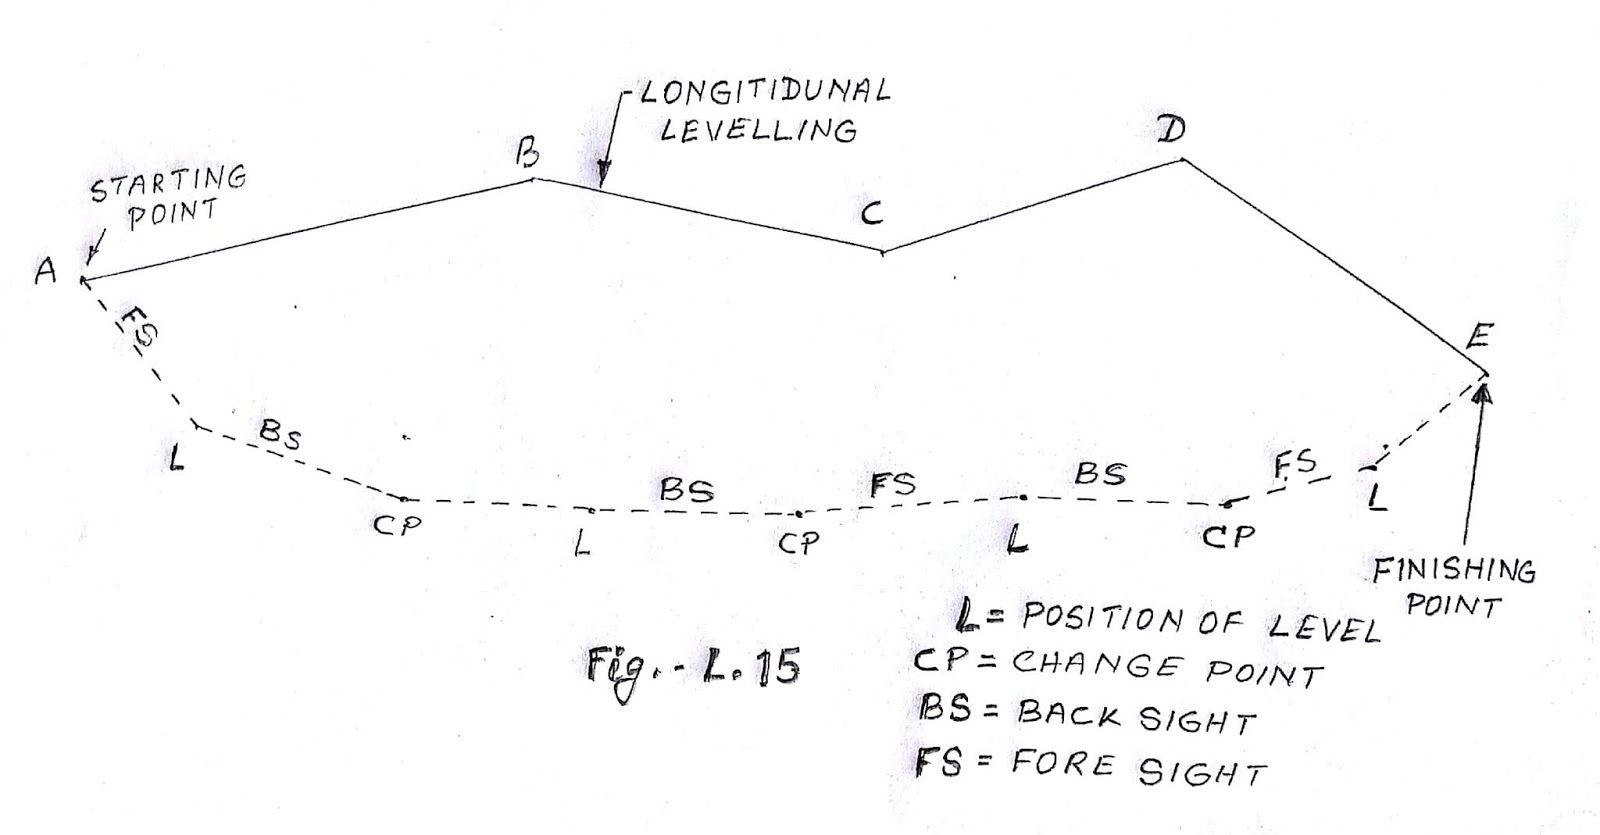 LONGITIDUNAL
LEVELLING
D
B
STARTING
POINT
C
A
FS
E
BS
L
BS
FS
BS
FS
L
CP
L
CP
L
CP
FINISHING
POINT
L = POSITION OF LEVEL
CP = CHANGE POINT
BS = BACK SIGHT
FS = FORE SIGHT
Fig. - L. 15